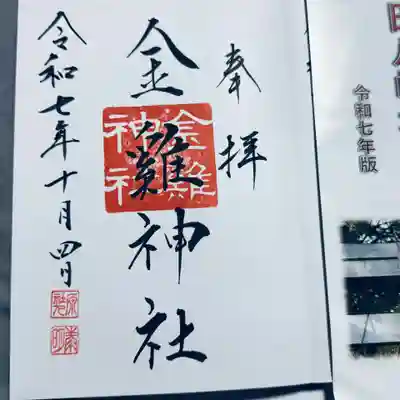 奉拝
金雞神社
金雞神社
令和七年十月四日
令和七年版